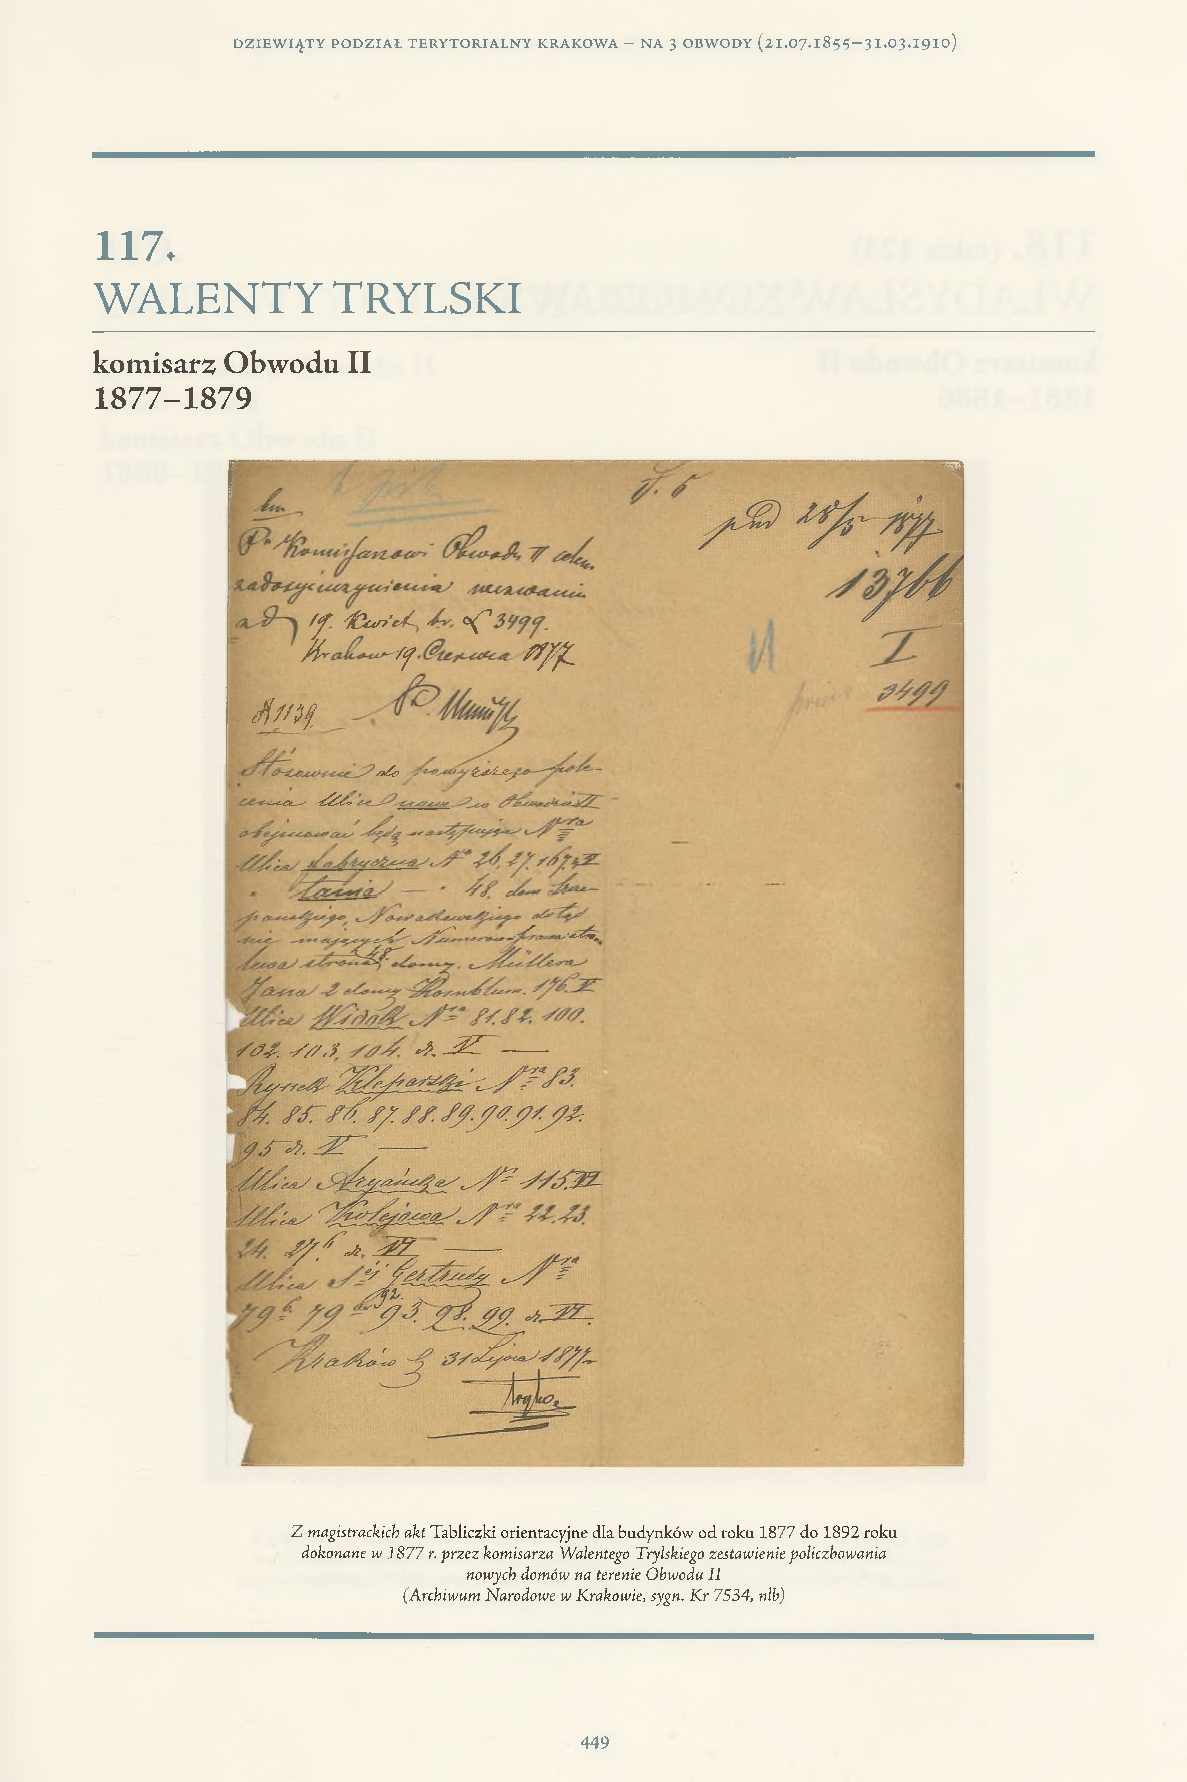 DZIEWIĄTY PODZIAŁ TERYTORIALNY KRAKOWA – NA 3 OBWODY (21.07.1855–31.03.1910)
117.
WALENTY TRYLSKI
komisarz Obwodu II
1877–1879
Komisarzowi Obwodu II celem
zadosyćuczynienia wezwaniu
ad 19. Kwiet. br. L 3499.
Krakow 19. Czerwca 1877
№ 1139
13766
II I
3499
Stosownie do powyższego pole-
cenia Ulice nowe w Obwodzie II
obejmować będą następujące Nra
Ulica Fabryczna Nr 26. 27. 167.
" Łania — " 48. dom Szcze-
pańskiego, Nowakowskiego dotąd
nie mających Numerów prawa stro.
lewa strona 48. domy. Müllera
Jana 2 domy Kornblum. 176. V
Ulica Widok Nra 81. 82. 100.
102. 103. 104. d. V —
Rynek Kleparski Nra 83.
84. 85. 86. 87. 88. 89. 90. 91. 92.
95 d. V —
Ulica Aryańska Nr 115. VI
Ulica Kolejowa Nra 22. 23.
24. 27b d. VI —
Ulica Sej Gertrudy Nra
79b 79 92. 93. 98. 99. d. VI.
Kraków d. 31 Lipca 1877
Z magistrackich akt Tabliczki orientacyjne dla budynków od roku 1877 do 1892 roku
dokonane w 1877 r. przez komisarza Walentego Trylskiego zestawienie policzbowania
nowych domów na terenie Obwodu II
(Archiwum Narodowe w Krakowie, sygn. Kr 7534, nlb)
449